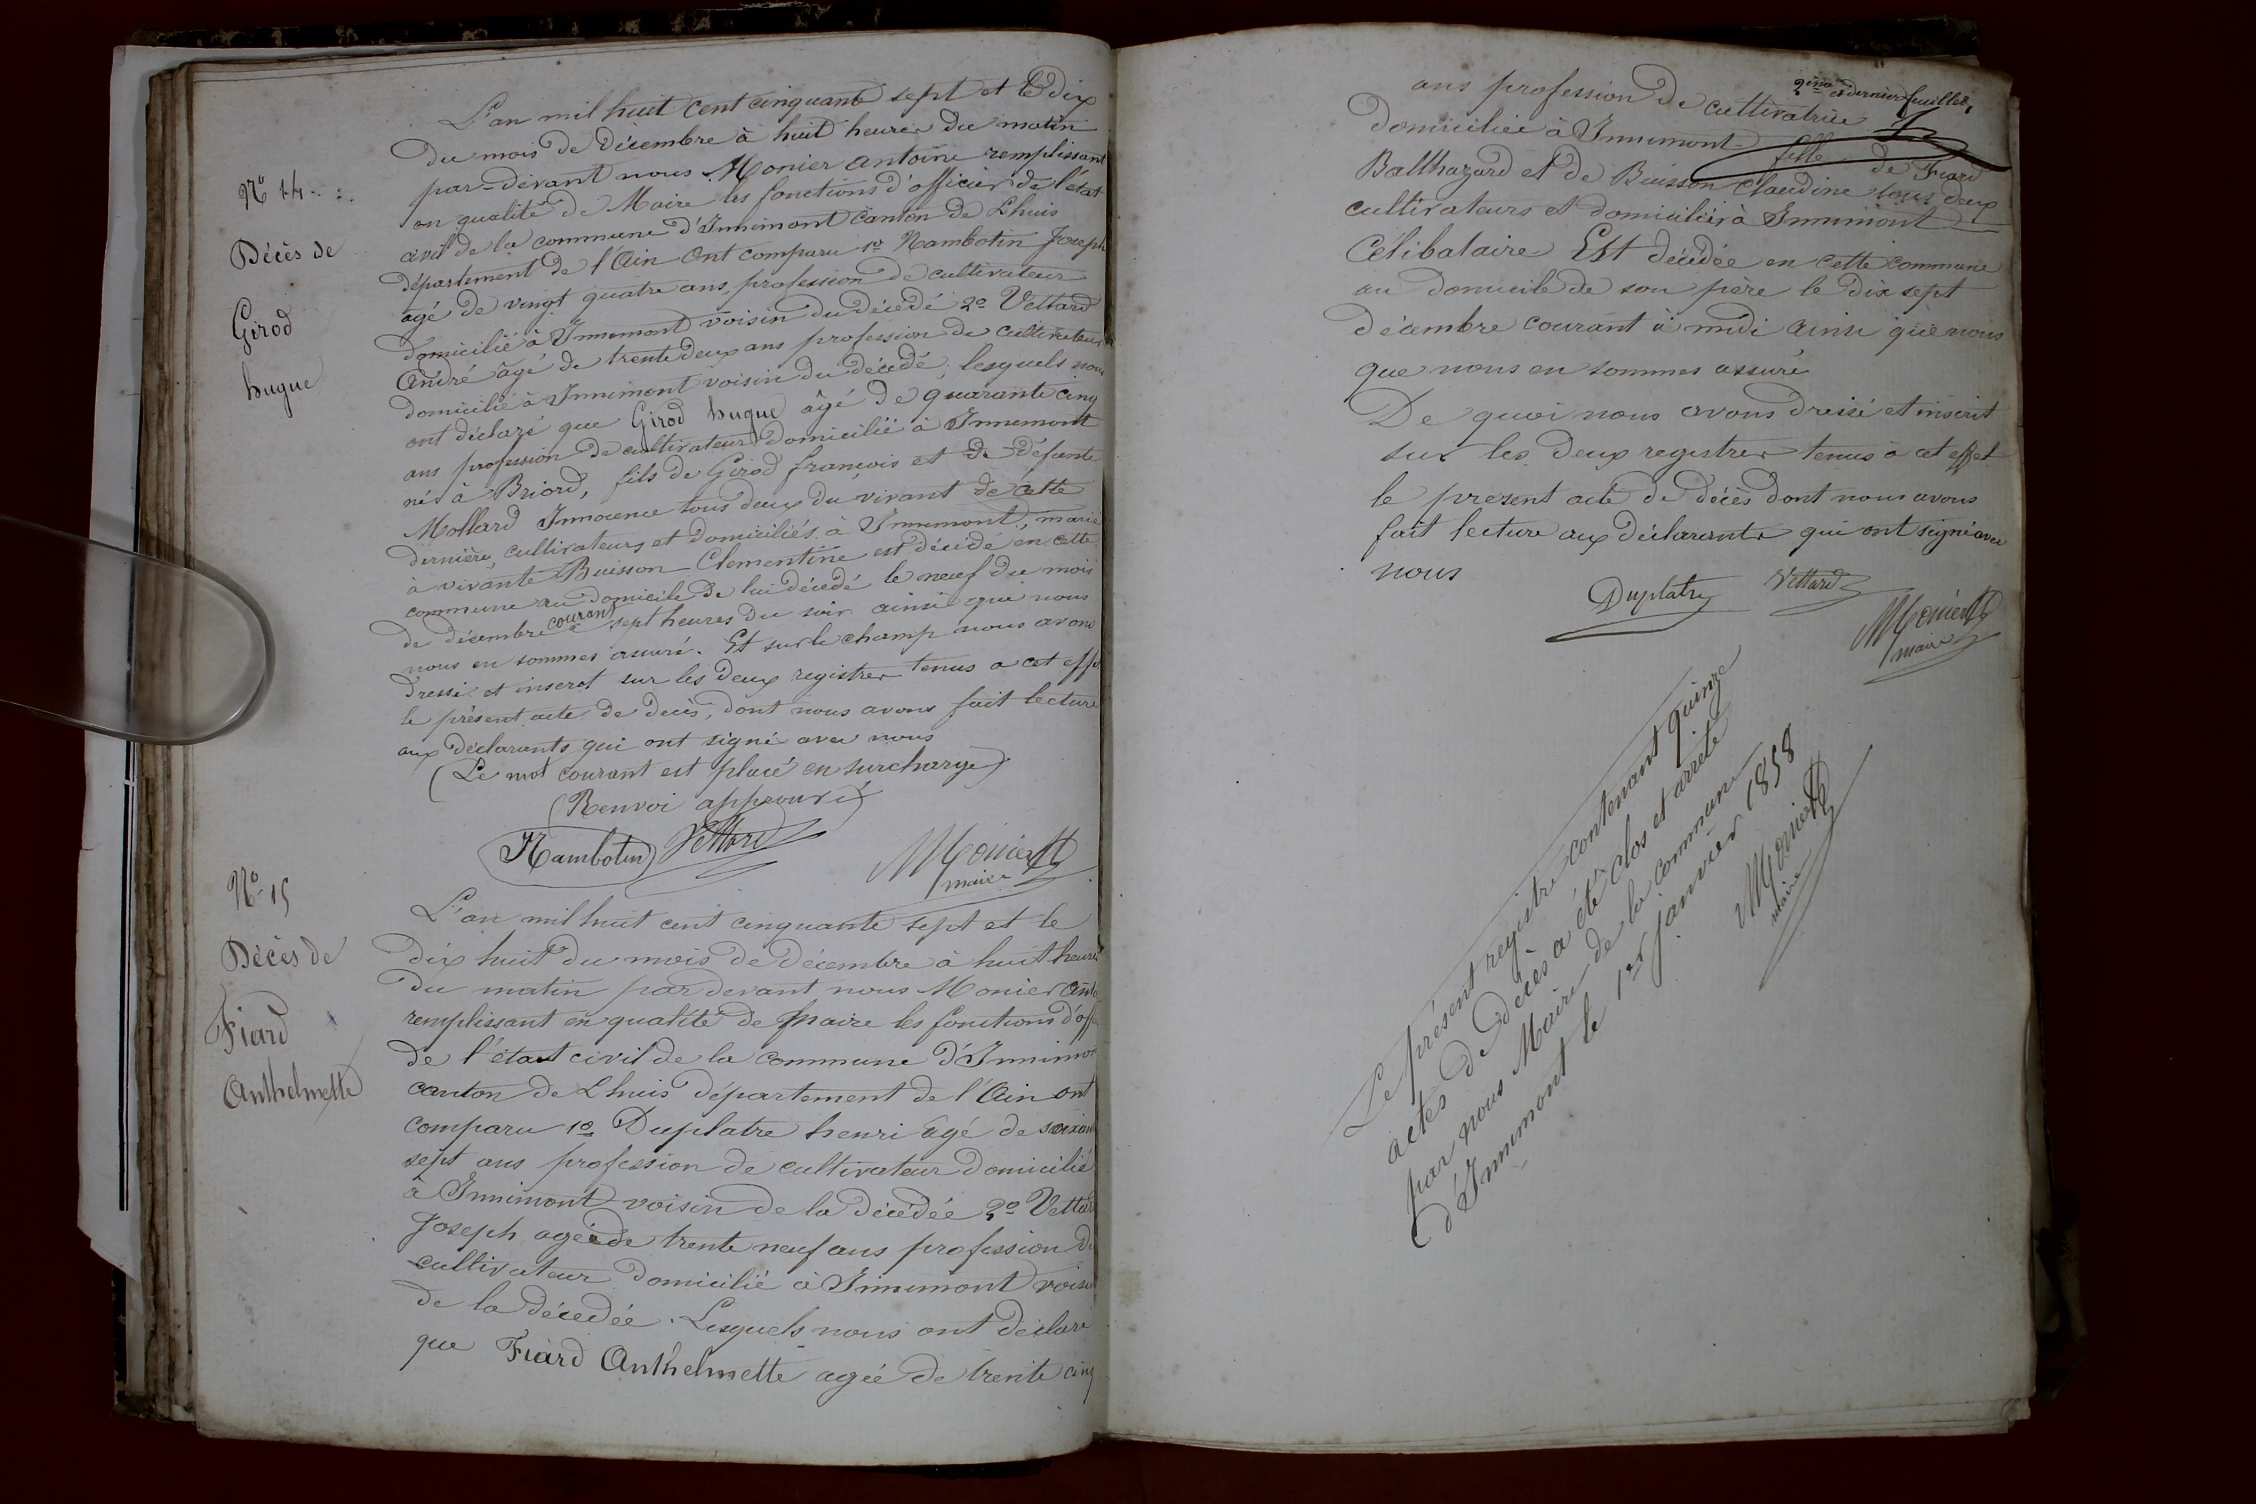 N.º 14
Décès de
Girod
hugue
L'an mil huit cent cinquante sept et le dix
du mois de Décembre à huit heures du matin
par-devant nous Monier Antoine remplissant
en qualité de Maire les fonctions d'officier de l'état
civil de la commune d'Innimont canton de Lhuis
département de l'Ain Ont comparu 1º Nambotin Joseph
âgé de vingt quatre ans, profession de cultivateur
domicilié à Innimont voisin du décédé 2º Vettard
André âgé de trente deux ans profession de cultivateur
domicilié à Innimont voisin du décédé, lesquels nous
ont déclaré que Girod hugue âgé de quarante cinq
ans profession de cultivateur domicilié à Innimont
nés à Briord, fils de Girod françois et de défunte
Mollard Innocence tous deux du vivant de cette
dernière, cultivateurs et domiciliés à Innimont, marié
à vivante Buisson Clementine est décédé en cette
commune au domicile de lui décédé le neuf du mois
de décembre courant à sept heures du soir ainsi que nous
nous en sommes assuré. Et sur le champ nous avons
dressé et inscrit sur les deux registres tenus a cet effet
le présent acte de decès, dont nous avons fait lecture
aux déclarants qui ont signé avec nous
(Le mot courant est placé en surcharge)
(Renvoi approuvé)
Nambotin Vettard Monier
maire
Nº 15
Décès de
Fiard
Anthelmette
L'an mil huit cent cinquante sept et le
dix huit du mois de Décembre à huit heures
du matin par devant nous Monier Anto
remplissant en qualité de Maire les fonctions d'off
de l'état civil de la commune d'Innimo
canton de Lhuis département de l'Ain ont
comparu 1º Duplatre henri âgé de soixan
sept ans profession de cultivateur domicilié
à Innimont voisin de la décédée 2º Vettard
Joseph agé de trente neuf ans profession de
cultivateur domicilié à Innimont voisin
de la décédée. Lesquels nous ont déclaré
que Fiard Anthelmette agée de trente cinq
2ème et dernier feuillet,
ans profession de cultivatrice
domiciliée à Innimont fille de Fiard
Balthazard et de Buisson Claudine tous deux
cultivateurs et domiciliés à Innimont
Célibataire Est décédée en cette commune
au domicile de son père le dix sept
décembre courant à midi ainsi que nous
que nous en sommes assuré
De quoi nous avons dressé et inscrit
sur les deux registres tenus à cet effet
le present acte de décès dont nous avons
fait lecture aux déclarants qui ont signé avec
nous
Duplatre Vettard
Monier
maire
Le présent registre contenant quinze
actes de décès a été clos et arrêté
par nous Maire de la commune
d'Innimont le 1er janvier 1858
Monier
maire